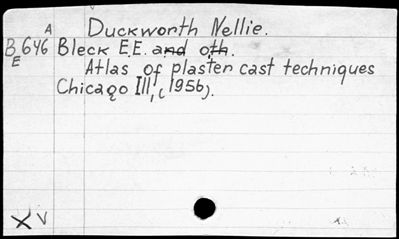 A Duckworth Nellie.
B646 Bleck E.E. and oth.
E Atlas of plaster cast techniques
Chicago Ill, (1956).
X V